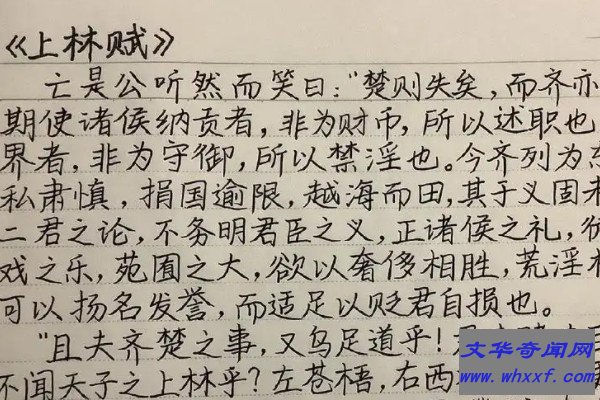 《上林赋》
亡是公听然而笑曰:"楚则失矣,而齐亦
期使诸侯纳贡者,非为财币,所以述职也
界者,非为守御,所以禁淫也。今齐列为东
私肃慎,捐国逾限,越海而田,其于义固未
二君之论,不务明君臣之义,正诸侯之礼,
戏之乐,苑囿之大,欲以奢侈相胜,荒淫
可以扬名发誉,而适足以贬君自损也。
"且夫齐楚之事,又乌足道乎!
不闻天子之上林乎?左苍梧,右西
文华奇闻网
www.whxxf.com